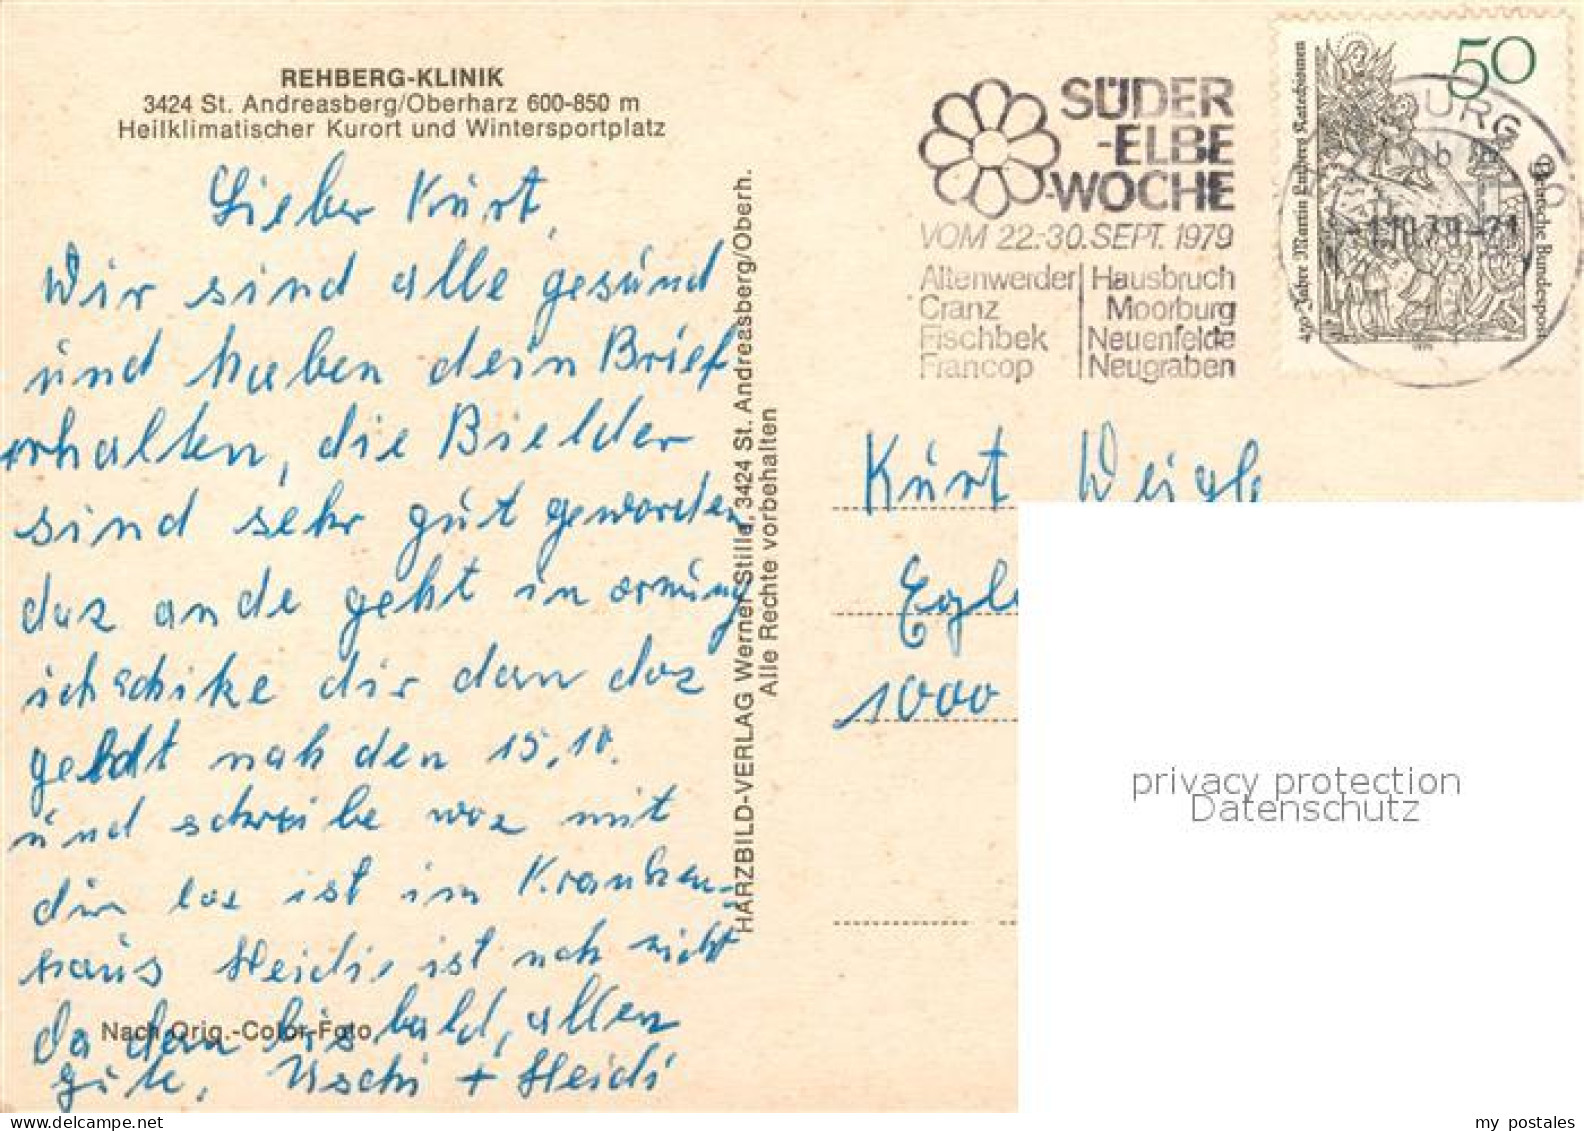 REHBERG-KLINIK
3424 St. Andreasberg/Oberharz 600-850 m
Heilklimatischer Kurort und Wintersportplatz
Lieber Kurt,
Wir sind alle gesund
und haben dein Brief
erhalten, die Bielder
sind sehr gut geworden
das ande geht in ornung
ich schike dir dan das
geldt nah den 15.10.
und schreibe was mit
dir los ist im Kranken-
haus Heidi ist noh nicht
da dan bis bald, allen
gute, Uschi + Heidi
Nach Orig.-Color-Foto
HARZBILD-VERLAG Werner Stille, 3424 St. Andreasberg/Oberh.
Alle Rechte vorbehalten
SÜDER
-ELBE
-WOCHE
VOM 22.-30. SEPT. 1979
Altenwerder Hausbruch
Cranz Moorburg
Fischbek Neuenfelde
Francop Neugraben
50
450 Jahre Martin Luthers Katechismen
Deutsche Bundespost
1979
-1.10.79-21
Kurt Weigl
Egl
1000
privacy protection
Datenschutz
my postales